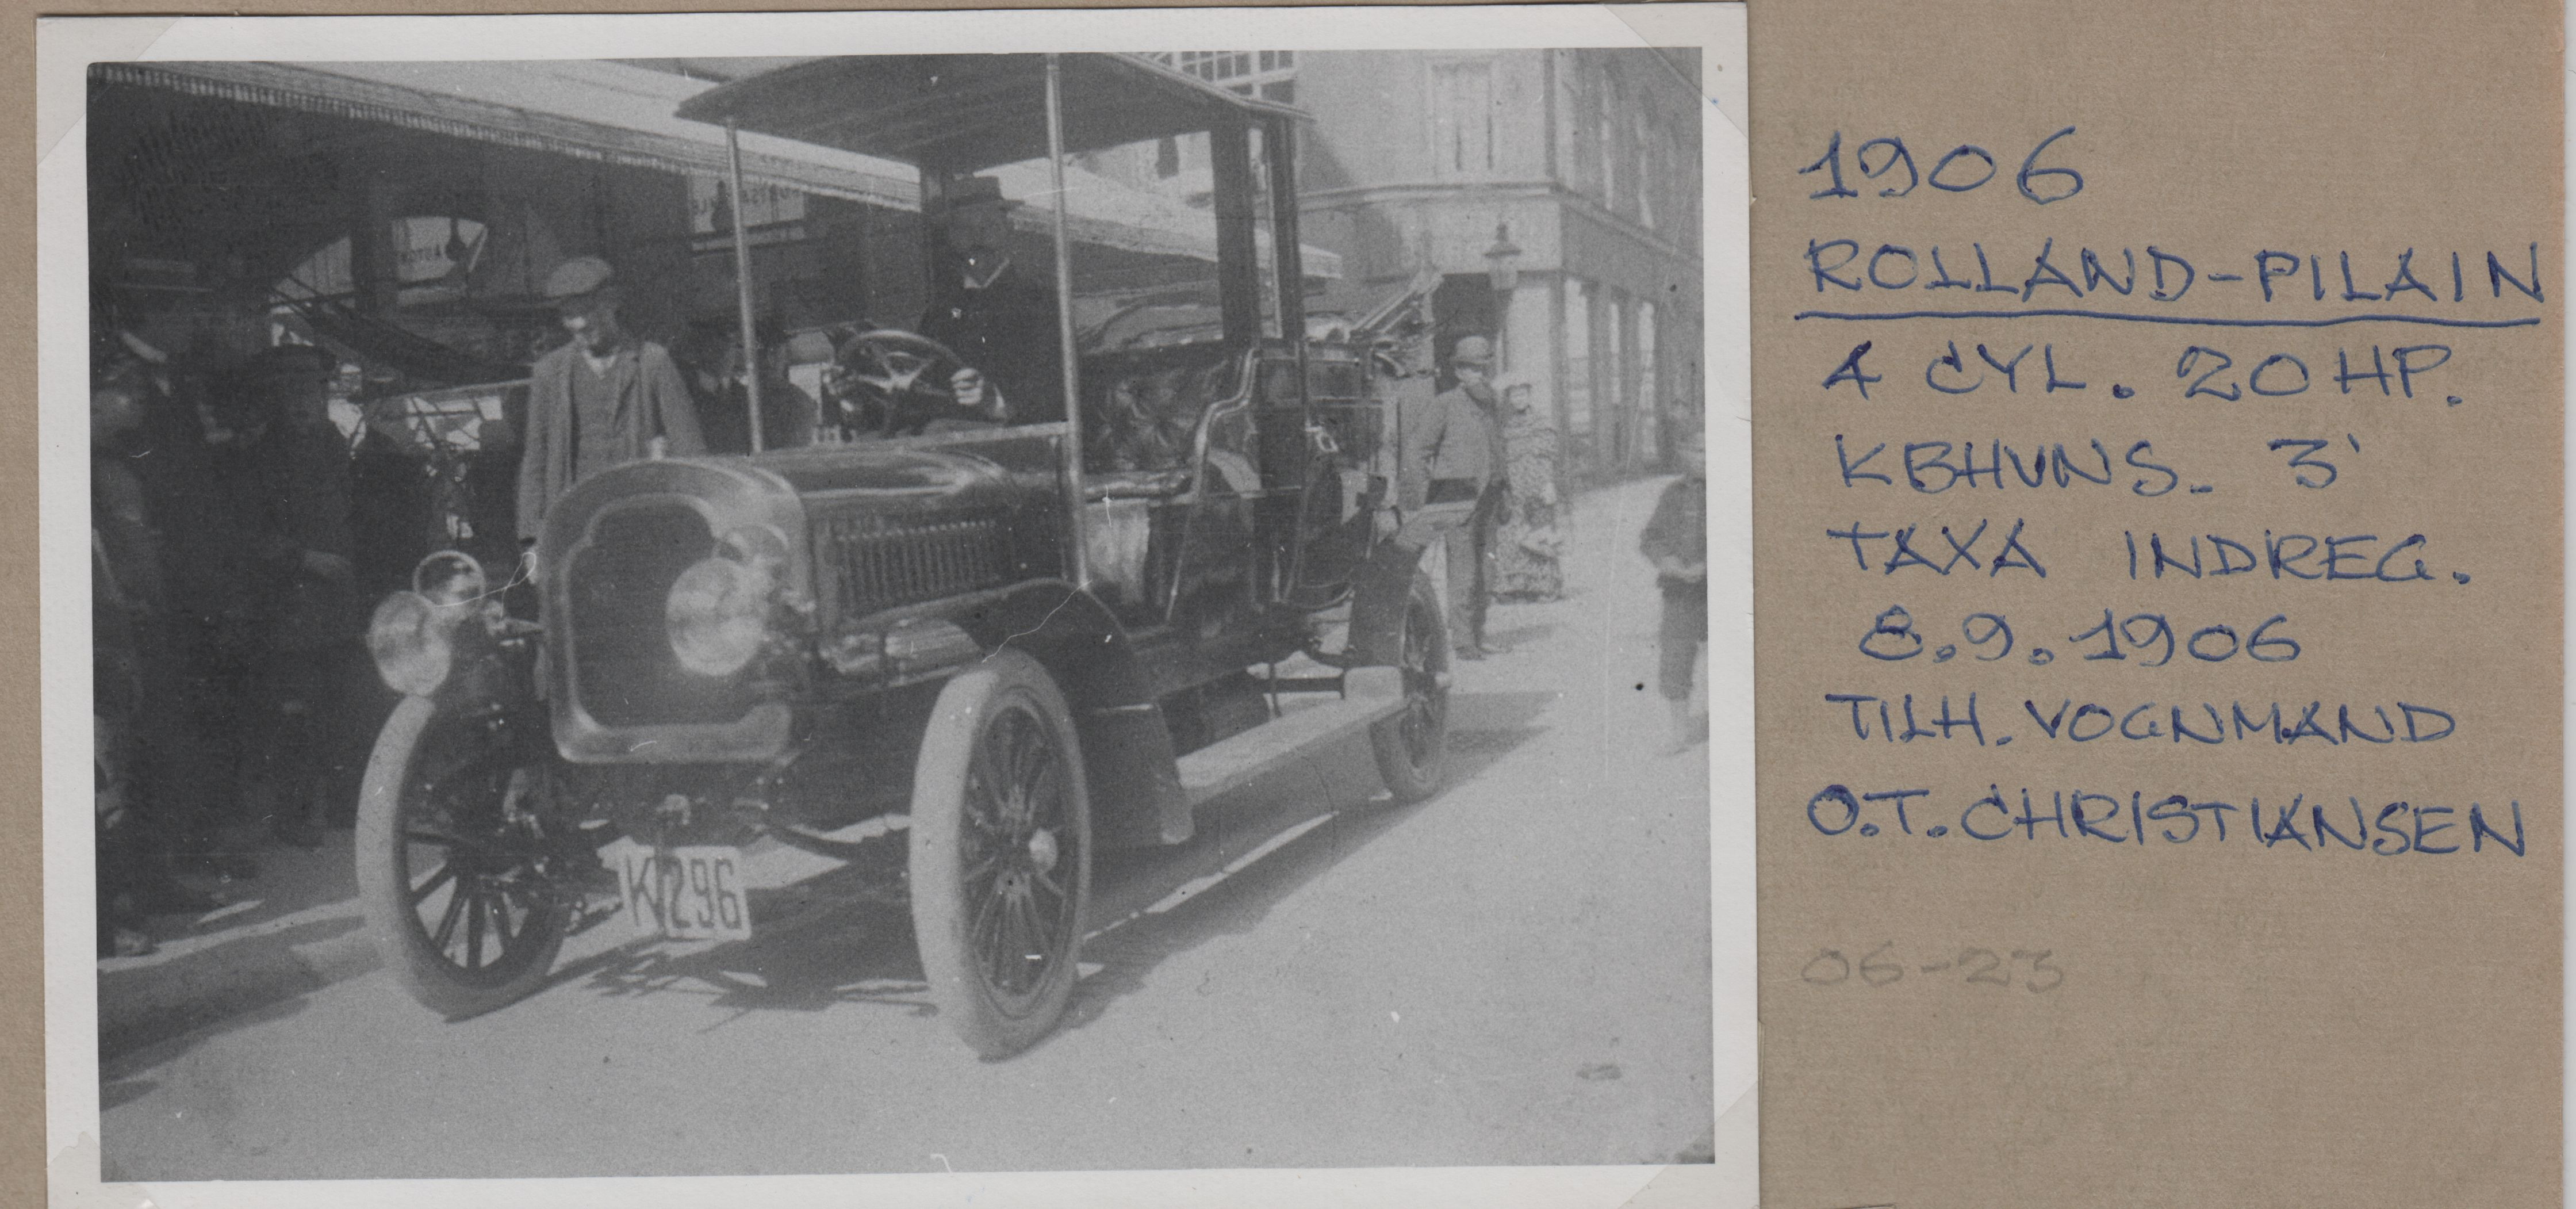 K 296
1906
ROLLAND-PILAIN
4 CYL. 20 HP.
KBHVNS. 3'
TAXA INDREG.
8.9.1906
TILH. VOGNMAND
O.T. CHRISTIANSEN
06-23